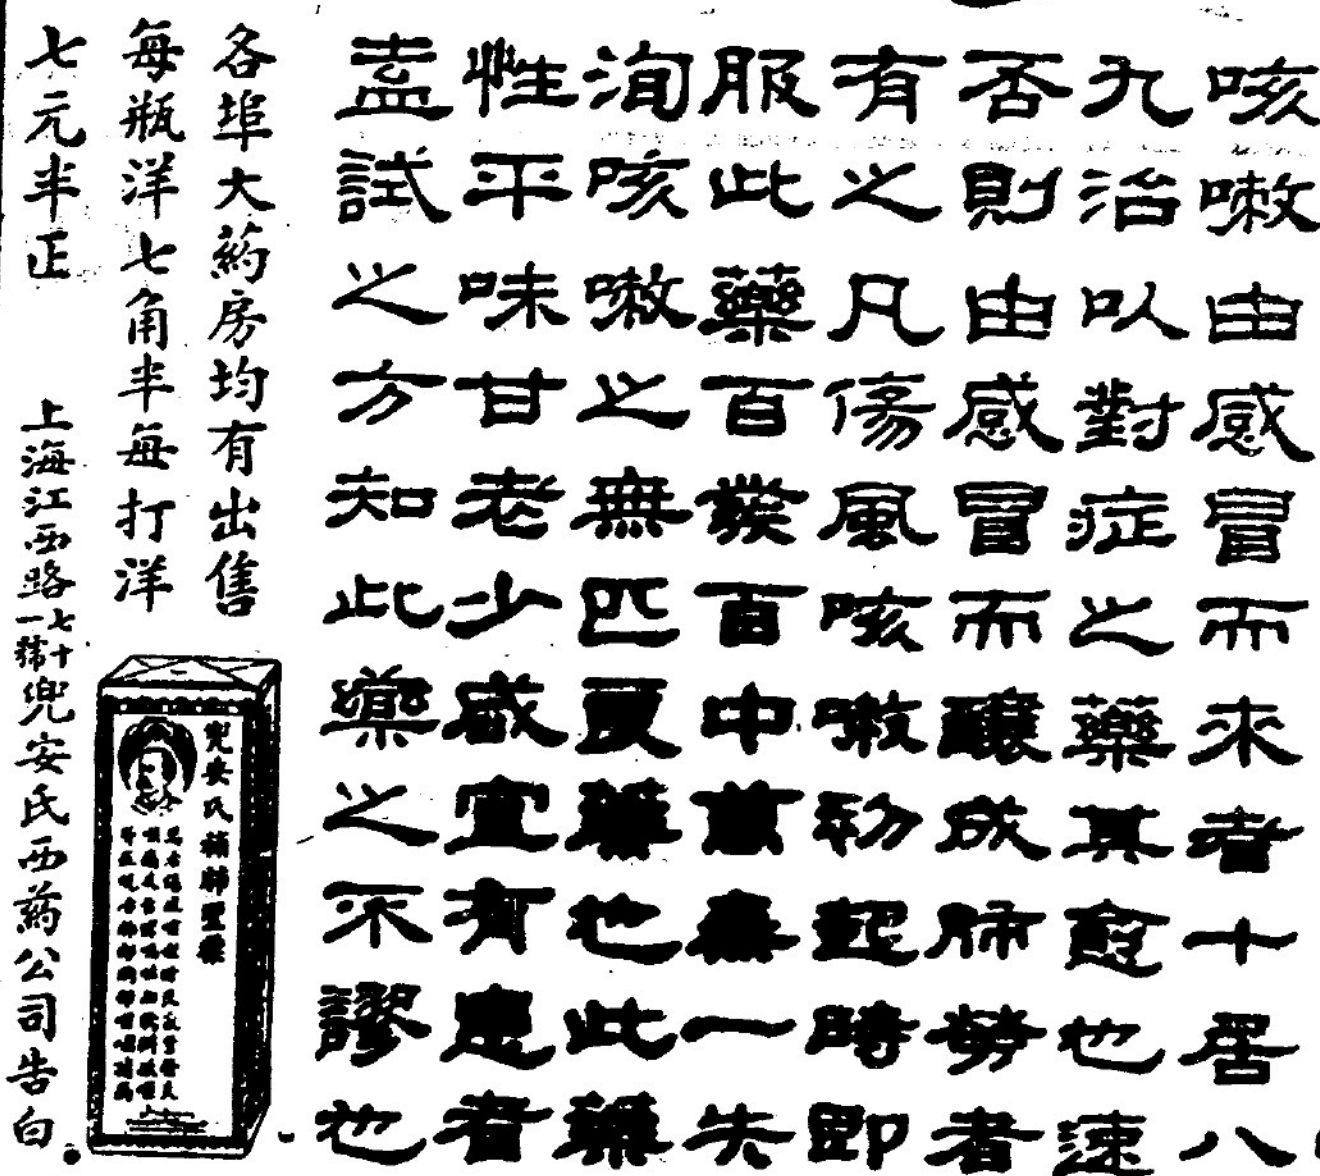 咳嗽由感冒而來者十居八
九治以對症之藥其愈也速
否則由感冒而釀成肺勞者
有之凡傷風咳嗽初起時即
服此藥百發百中萬無一失
洵咳嗽之無匹良藥也此藥
性平味甘老少咸宜有患者
盍試之方知此藥之不謬也
各埠大葯房均有出售
每瓶洋七角半每打洋
七元半正
上海江西路七十一號兜安氏西葯公司告白
兜安氏補肺聖藥